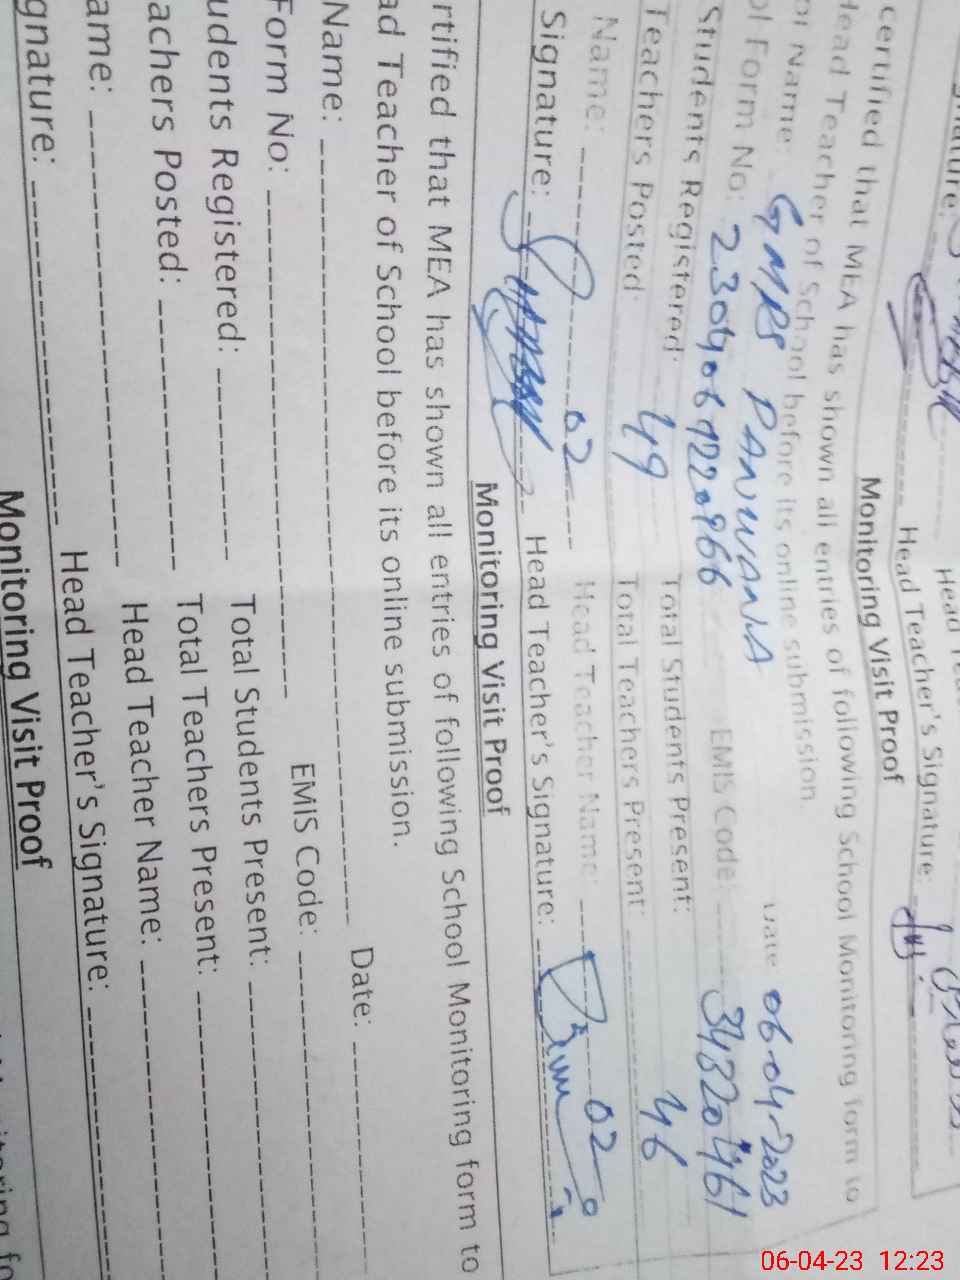 Head
Head Teacher's Signature:
Monitoring Visit Proof
certified that MEA has shown all entries of following School Monitoring form to
Head Teacher of School before its online submission
ol Name: GMPS PANWANA Date 06-04-2023
ol Form No: 2304061220966 EMIS Code: 34320461
Students Registered: 49 Total Students Present: 46
Teachers Posted: 02 Total Teachers Present: 02
Name: Head Teacher Name:
Signature: Head Teacher's Signature:
Monitoring Visit Proof
rtified that MEA has shown all entries of following School Monitoring form to
ad Teacher of School before its online submission.
Name: Date:
Form No: EMIS Code:
udents Registered: Total Students Present:
achers Posted: Total Teachers Present:
ame: Head Teacher Name:
gnature: Head Teacher's Signature:
Monitoring Visit Proof
06-04-23 12:23